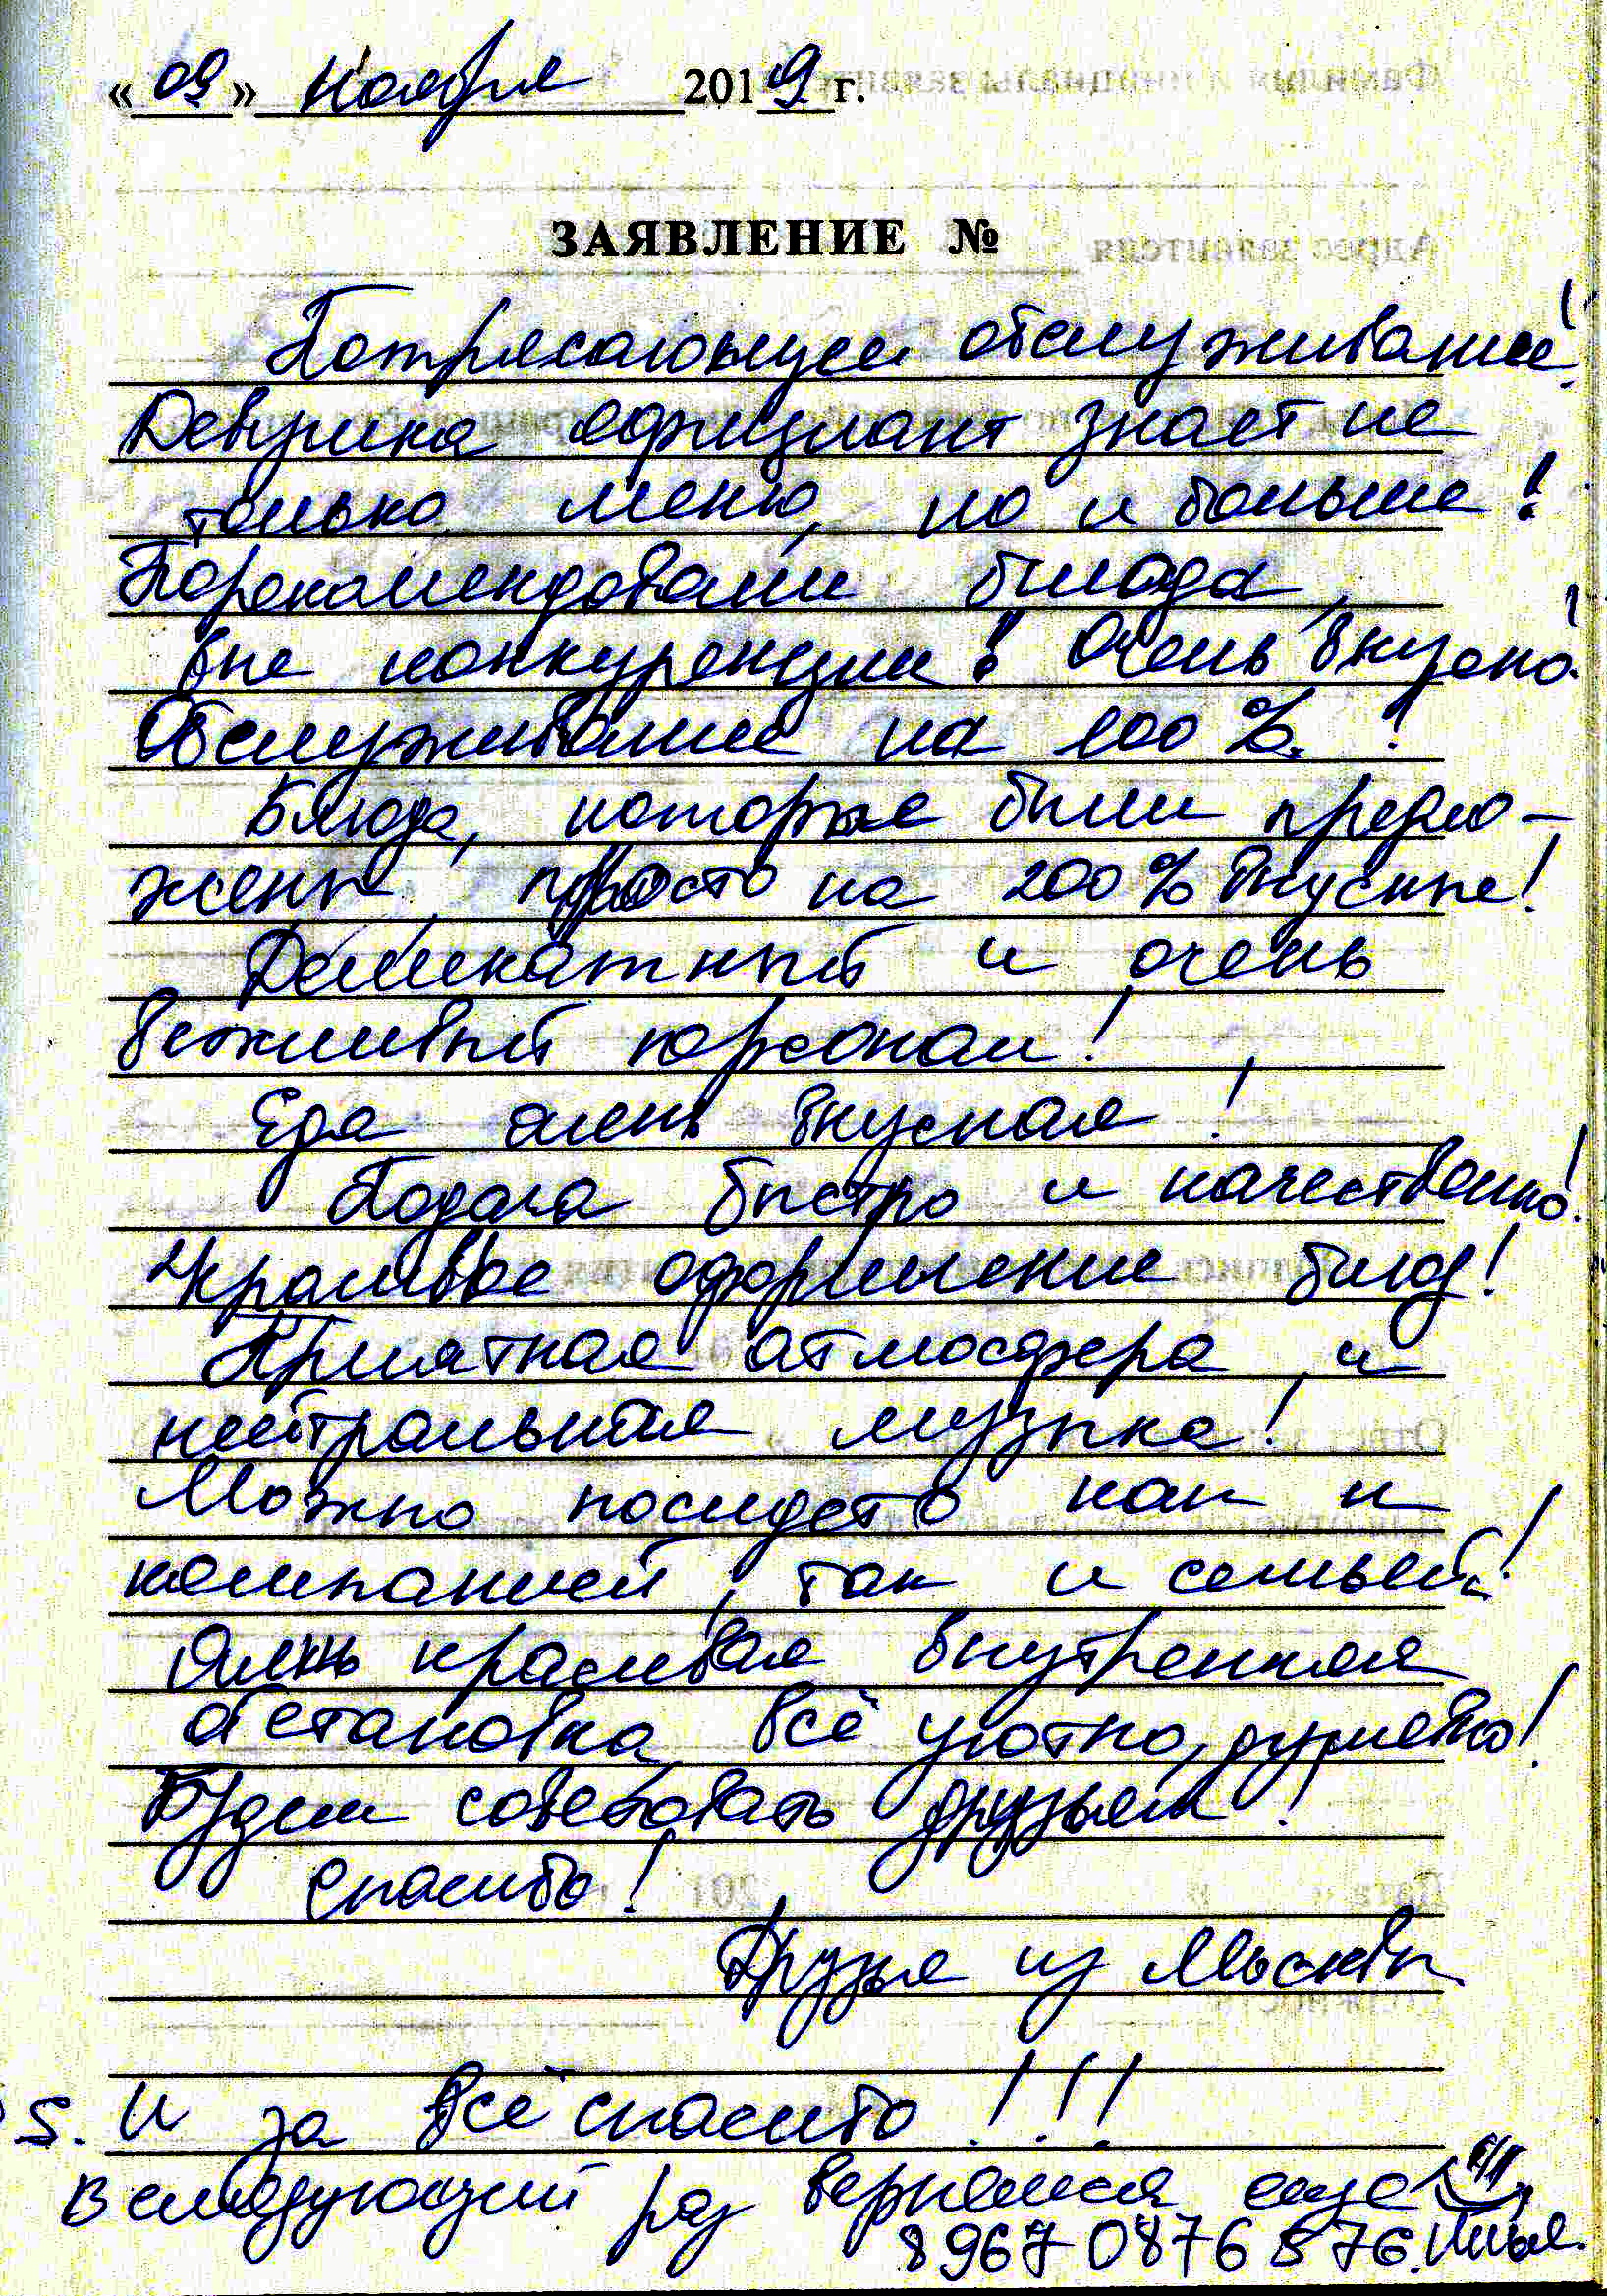 «09» Ноября 2019 г.
ЗАЯВЛЕНИЕ №
Потрясающее обслуживание!
Девушка официант знает не
только меню, но и больше!
Порекомендовали блюда,
вне конкуренции! Очень вкусно!
Обслуживание на 100%!
Блюда, которые были предло-
жены, просто на 200% вкусные!
Деликатный и очень
вежливый персонал!
Еда очень вкусная!
Подача быстро и качественно!
Красивое оформление блюд!
Приятная атмосфера и
нейтральная музыка!
Можно посидеть как и
компанией, так и семьей!
Очень красивая внутренняя
обстановка, всё уютно, душевно!
Будем советовать друзьям!
Спасибо!
Друзья из Москвы
S. И за всё спасибо!!!
В следующий раз вернемся еще
8967 0876 876. Илья.